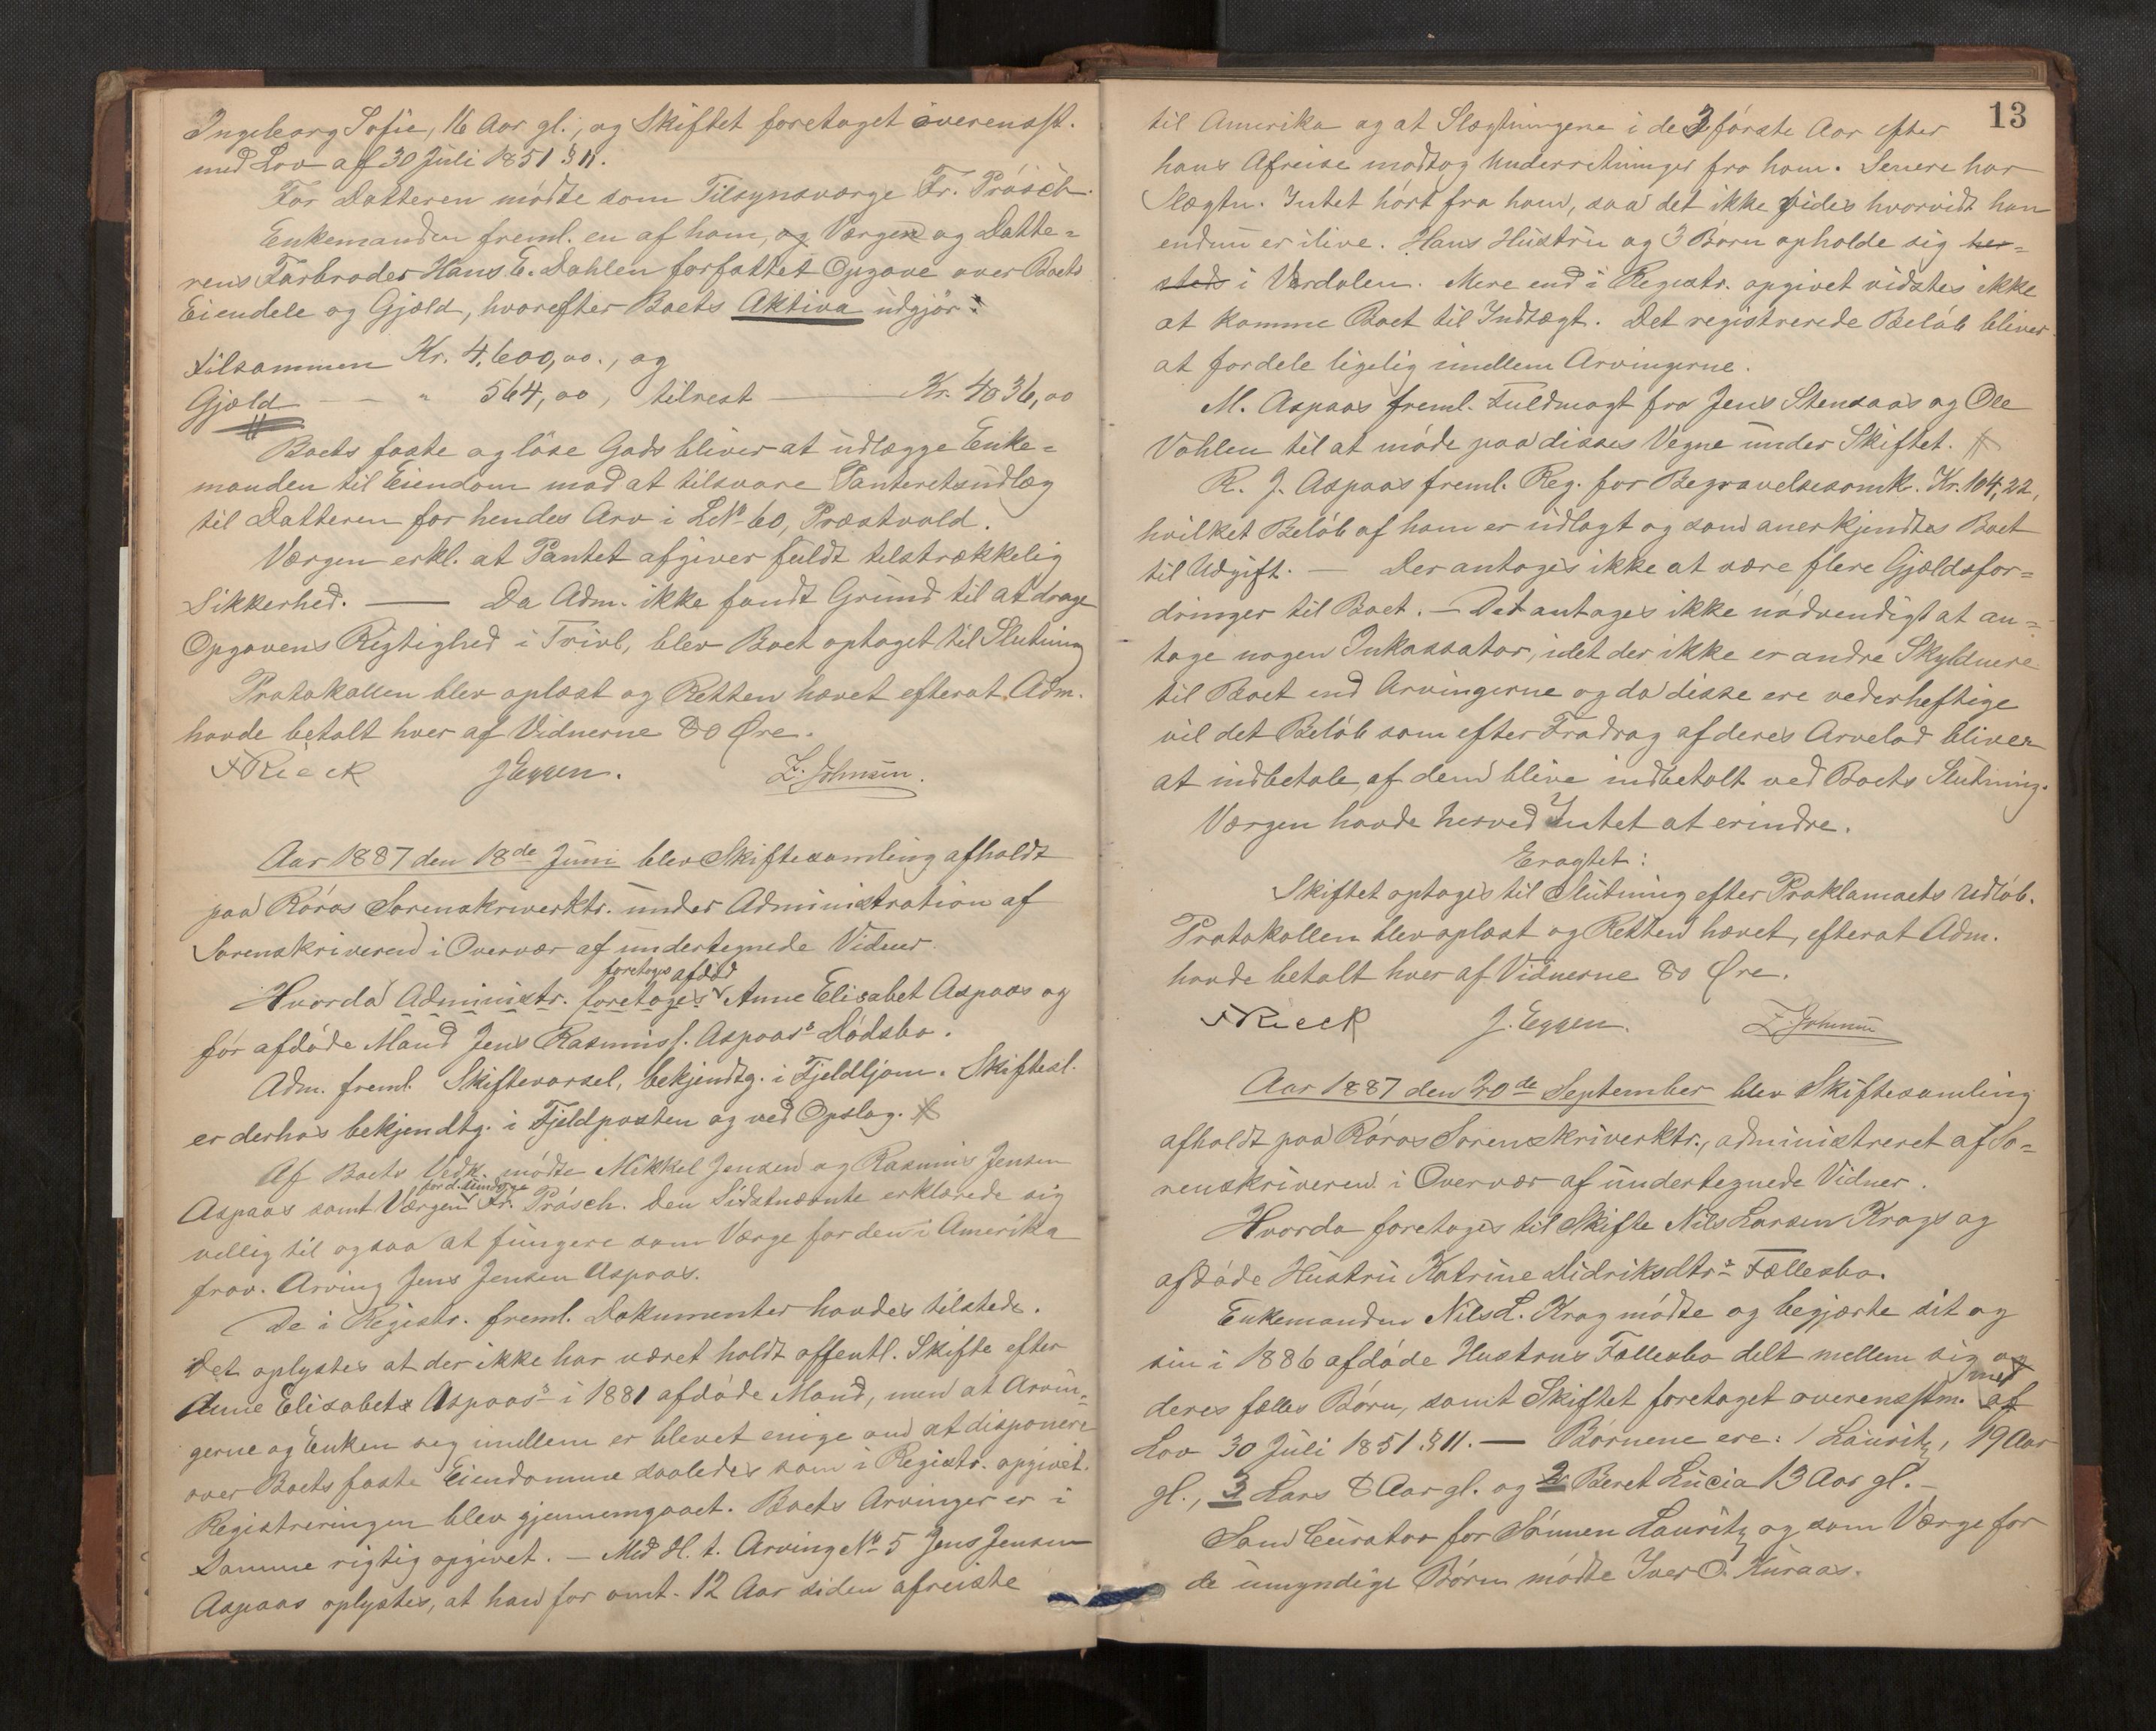 Ingeborg Sofie, 16 Aar gl., og Skiftet foretaget överensst.
med Lov af 30 Juli 1851 § 11.
For Datteren mødte som Tilsynsværge Fr. Prösch.
Enkemanden freml. en af ham, og Værgen og Datte-
rens Farbroder Hans E. Dahlen forfattet Opgave over Boets
Eiendele og Gjæld, hvorefter Boets Aktiva udgjör:
tilsammen Kr. 4,600,00., og
Gjæld — — " 564,00, tilrest — Kr. 4036,00
Boets faste og löse Gods bliver at udlægge Enke-
manden til Eiendom mod at tilsvare Panteretsudlæg
til Datteren for hendes Arv i LNo 60, Præstvold.
Værgen erkl. at Pantet afgiver fuldt tilstrækkelig
Sikkerhed. — Da Adm. ikke fandt Grund til at drage
Opgavens Rigtighed i Tvivl, blev Boet optaget til Slutning
Protokollen blev oplæst og Retten hævet efterat Adm.
havde betalt hver af Vidnerne 80 Øre.
Rieck J Eggen. Z. Johnsen.
Aar 1887 den 18de Juni blev Skiftesamling afholdt
paa Röros Sorenskriverktr. under Administration af
Sorenskriveren i Overvær af undertegnede Vidner.
foretoges afdød
Hvorda Administr. foretoges Anne Elisabet Aspaas og
før afdøde Mand Jens Rasmuss. Aspaas's Dödsbo.
Adm. freml. Skiftevarsel, bekjendtg. i Fjeldljom. Skiftesl.
er derhos bekjendtg. i Fjeldposten og ved Opslag.
Af Boets Vedk. mødte Mikkel Jensen og Rasmus Jensen
for d. Umyndige
Aspaas samt Værgen Fr. Prösch. Den Sidstnævnte erklærede sig
villig til ogsaa at fungere som Værge for den i Amerika
frav. Arving Jens Jensen Aspaas.
De i Registr. freml. Dokumenter havdes tilstede.
Det oplystes at der ikke har været holdt offentl. Skifte efter
Anne Elisabets Aspaas's i 1881 afdøde Mand, men at Arvin-
gerne og Enken seg imellem er blevet enige om at disponere
over Boets faste Eiendomme saaledes som i Registr. opgivet.
Registreringen blev gjennemgaaet. Boets Arvinger er i
Samme rigtig opgivet. — Med H. t. Arving No 5 Jens Jensen
Aspaas oplystes, at han for omt. 12 Aar siden afreiste
13
til Amerika og at Slægtningene i de 3 første Aar efter
hans Afreise modtog Underretninger fra ham. Senere har
Slægtn. Intet hört fra ham, saa det ikke vides hvorvidt han
endnu er ilive. Hans Hustru og 3 Børn opholde sig her-
steds i Værdalen. Mere end i Registr. opgivet vidstes ikke
at komme Boet til Indtægt. Det registrerede Belöb bliver
at fordele ligelig imellem Arvingerne.
M. Aspaas freml. Fuldmagt fra Jens Stensaas og Ole
Vahlen til at møde paa disses Vegne under Skiftet.
R. J. Aspaas freml. Reg. for Begravelsesomk. Kr. 104,22,
hvilket Belöb af ham er udlagt og som anerkjendtes Boet
til Udgift. — Der antages ikke at være flere Gjældsfor-
dringer til Boet. — Det antages ikke nødvendigt at an-
tage nogen Inkassator, idet der ikke er andre Skyldnere
til Boet end Arvingerne og da disse ere vederheftige
vil det Belöb som efter Fradrag af deres Arvelod bliver
at indbetale, af dem blive indbetalt ved Boets Slutning.
Værgen havde herved Intet at erindre.
Eragtet:
Skiftet optages til Slutning efter Proklamaets Udløb.
Protokollen blev oplæst og Retten hævet, efterat Adm.
havde betalt hver af Vidnerne 80 Øre.
Rieck J. Eggen. Z Johnsen
Aar 1887 den 20de September blev Skiftesamling
afholdt paa Röros Sorenskriverktr., administreret af So-
renskriveren i Overvær af undertegnede Vidner.
Hvorda foretoges til Skifte Nils Larsen Krags og
afdøde Hustru Katrine Didriksdtr's Fællesbo.
Enkemanden Nils L. Krag mødte og begjærte sit og
sin i 1886 afdøde Hustrus Fællesbo delt mellem sig og
med
deres fælles Børn, samt Skiftet foretaget overensstm. af
Lov 30 Juli 1851 § 11. — Børnene ere: 1 Lauritz, 19 Aar
gl., 3 Lars 8 Aar gl. og 2 Beret Lucia 13 Aar gl. —
Som Curator for Sønnen Lauritz og som Værge for
de umyndige Børn mødte Iver O. Kuraas.